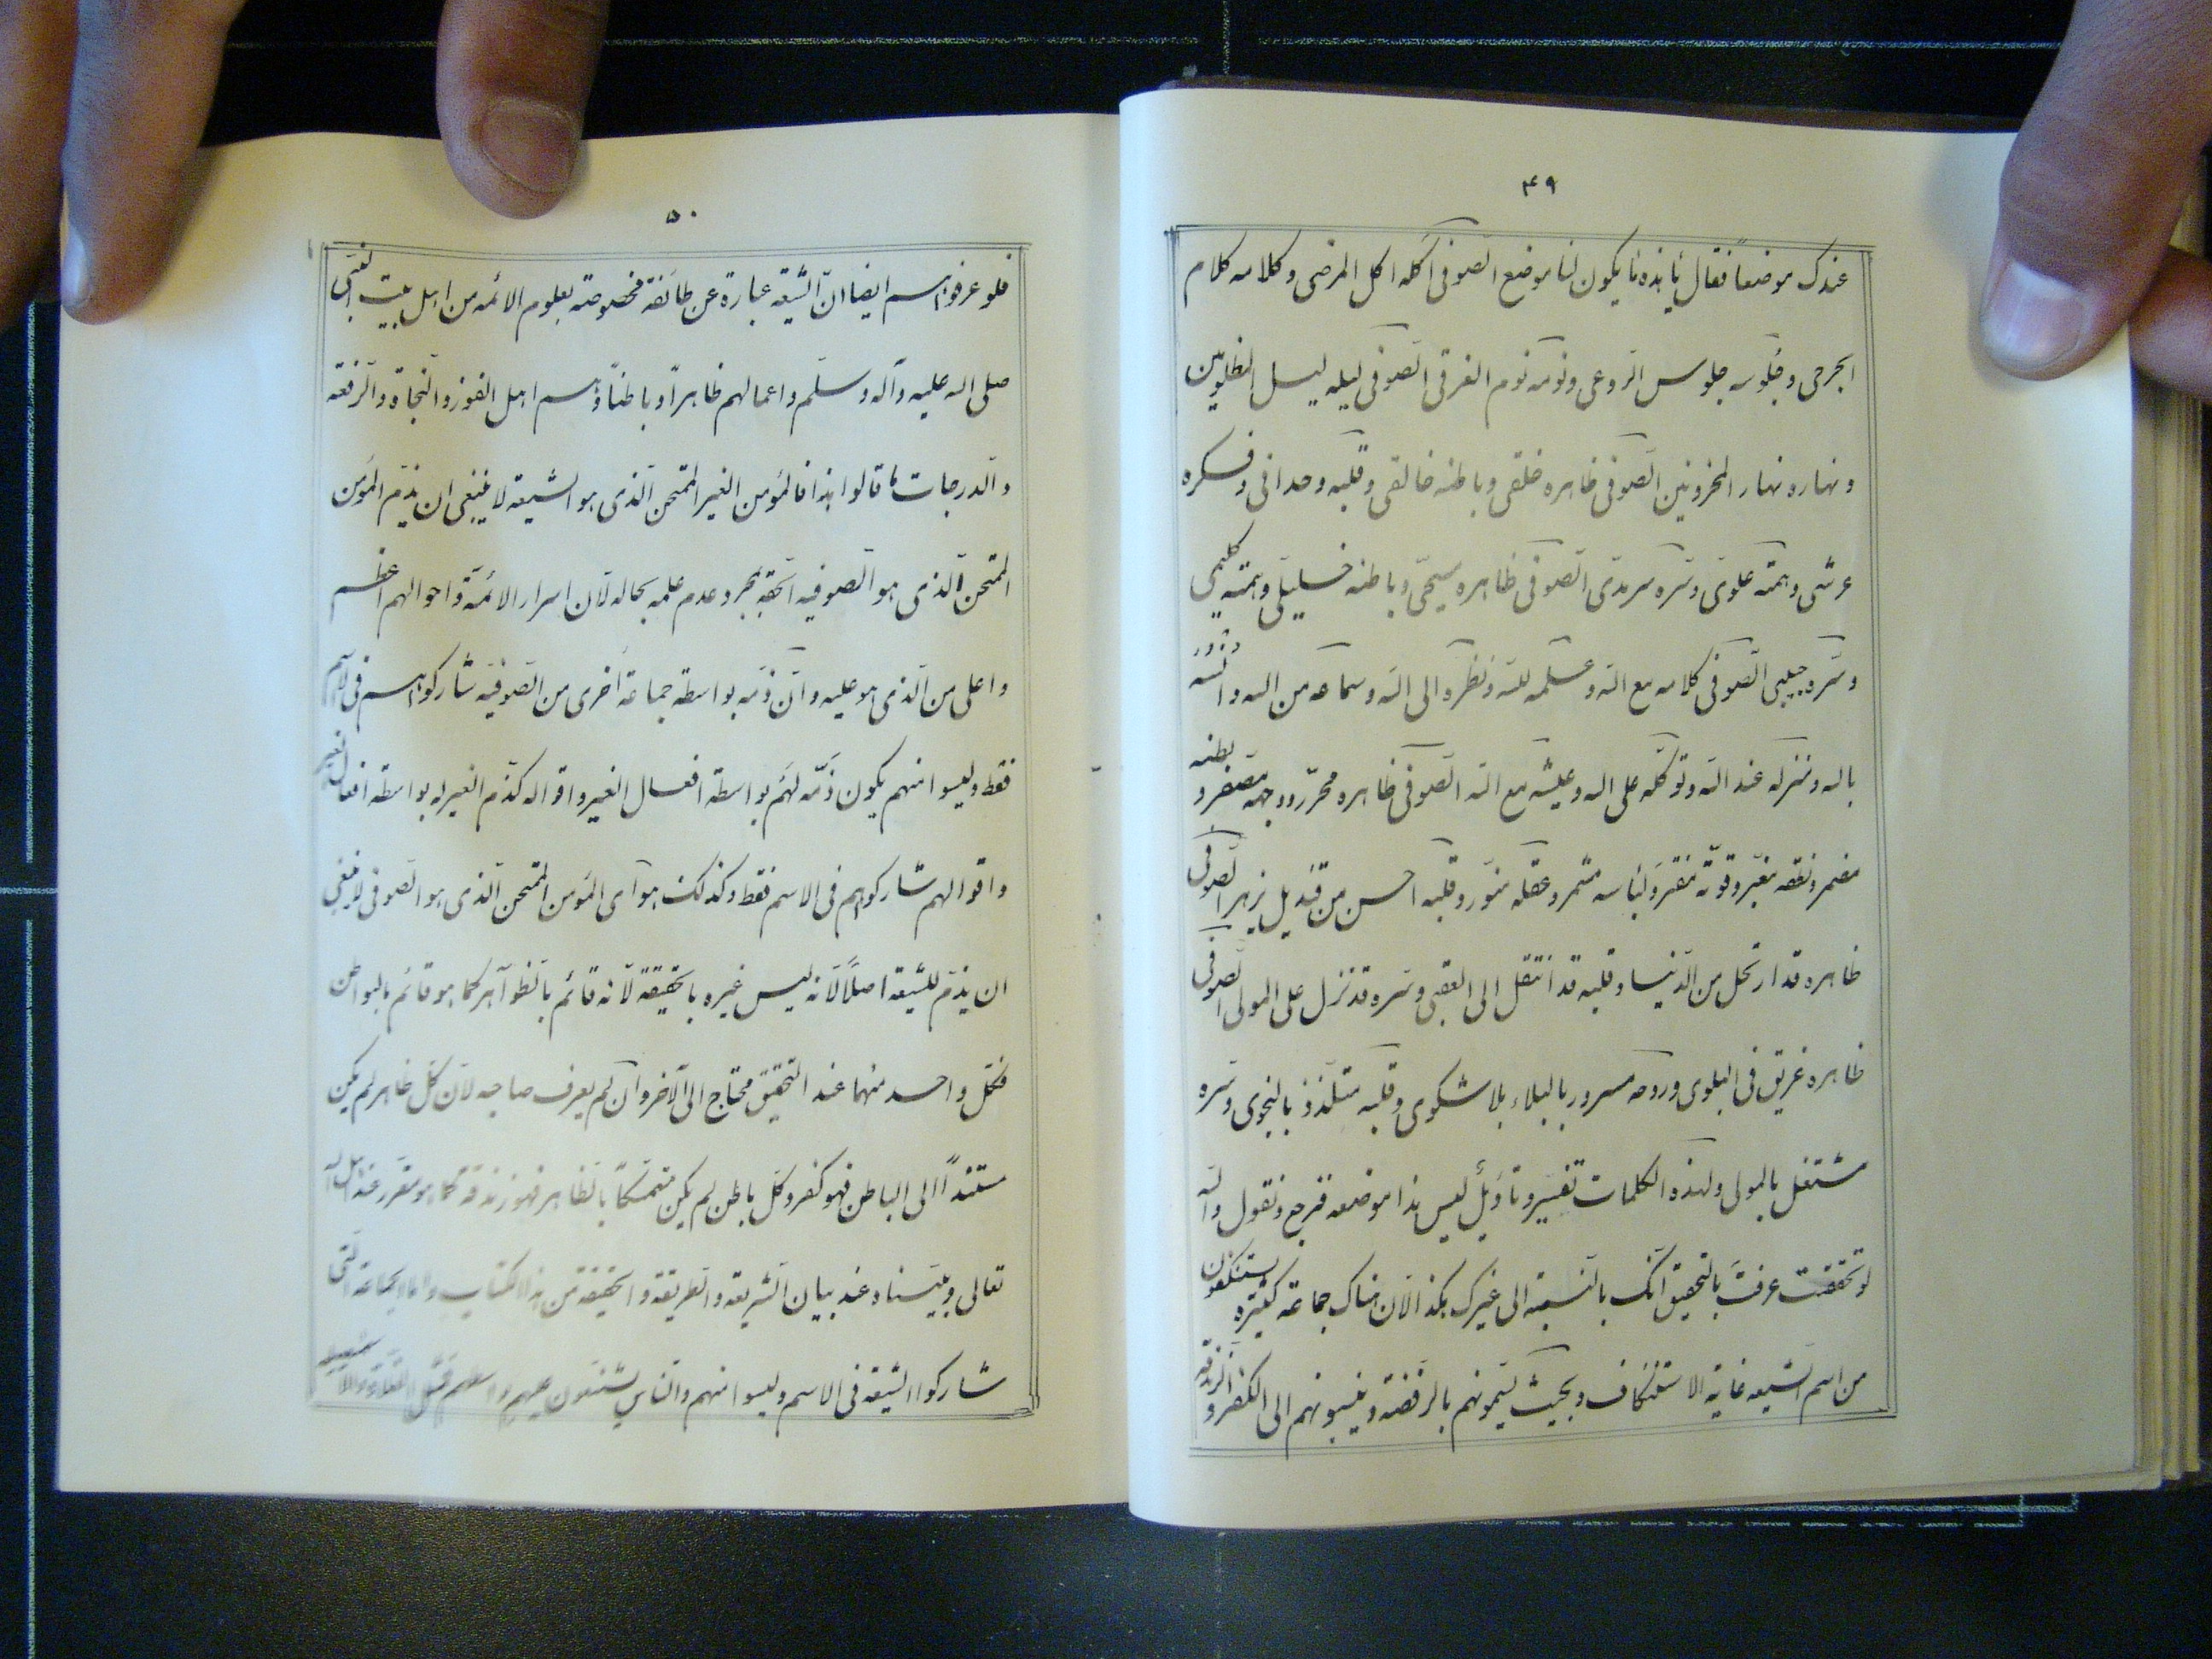 ۴۹
عندک موضعاً فقال یا هذه ما یکون لنا موضع الصّوفی اکله اکل المرضی و کلامه کلام
الجرحی و جلوسه جلوس الرّوعی و نومه نوم الغرقی الصّوفی لیله لیل المظلومین
و نهاره نهار المحزونین الصّوفی ظاهره خلقی و باطنه خالقی و قلبه وحدانی و فکره
عرشی و همته علویّ و سرّه سرمدیّ الصّوفی ظاهره مسیحیّ و باطنه خلیلی و همته کلیمی
و سرّه حبیبی الصّوفی کلامه مع الله و علمه لله و نظره الی الله و سماعه من الله و انسه
بالله و منزله عند الله و توکله علی الله و عیشه مع الله الصّوفی ظاهره محرّر و وجهه مصفر و بطنه
مضمر و نفقه مغبر و قوته مقتر و لباسه مشمر و عقله منوّر و قلبه احسن من قندیل یزهر الصّوفی
ظاهره قد ارتحل من الدّنیا و قلبه قد انتقل الی العقبی و سرّه قد نزل علی المولی الصّوفی
ظاهره غریق فی البلوی و روحه مسرور بالبلاء بلا شکوی و قلبه متلذّذ بالنجوی و سرّه
مشتغل بالمولی و لهذه الکلمات تفسیر و تأویل لیس هذا موضعه فنرجع و نقول والله
لو تحققت عرفت بالتحقیق انّک بالنسبة الی غیرک هکذا لانّ هناک جماعة کثیره یستنکفون
من اسم الشیعه غایة الاستنکاف و بحیث یسمّونهم بالرّفضة و ینسبونهم الی الکفر و الزندقة
۵۰
فلو عرفوا هم ایضا انّ الشّیعه عبارة عن طائفة مخصوصة بعلوم الائمه من اهل بیت النّبی
صلی الله علیه و آله و سلّم و اعمالهم ظاهراً و باطناً و هم اهل الفوز و النّجاة و الرّفعة
و الدّرجات ما قالوا هذا فالمؤمن الغیر الممتحن الذی هو الشیعه لا ینبغی ان یذمّ المؤمن
الممتحن الّذی هو الصّوفیه الحقّه بمجرد عدم علمه بحاله لانّ اسرار الائمّة و احوالهم اعظم
و اعلی من الّذی هو علیه و انّ ذمّه بواسطة جماعة اخری من الصّوفیه شارکوا هم فی الاسم
فقط و لیسوا منهم یکون ذمّه لهم بواسطة افعال الغیر و اقواله کذمّ الغیر له بواسطة افعال الغیر
و اقوالهم شارکوا هم فی الاسم فقط و کذلک هو ای المؤمن الممتحن الّذی هو الصّوفی لا ینبغی
ان یذمّ للشّیعة اصلاً لانّه لیس غیره بالحقیقة لانّه قائم بالظواهر کما هو قائم بالبواطن
فکلّ واحد منهما عند التحقیق محتاج الی الآخر و ان لم یعرف صاحبه لانّ کلّ ظاهر لم یکن
مستنداً الی الباطن فهو کفر و کلّ باطن لم یکن متمسّکاً بالظاهر فهو زندقة کما هو مقرر عند اهل الله
تعالی و بیّنّاه عند بیان الشّریعه و الطریقه و الحقیقة من هذا الکتاب و اما الجماعة الّتی
شارکوا الشّیعه فی الاسم و لیسوا منهم و النّاس یشنعون علیهم